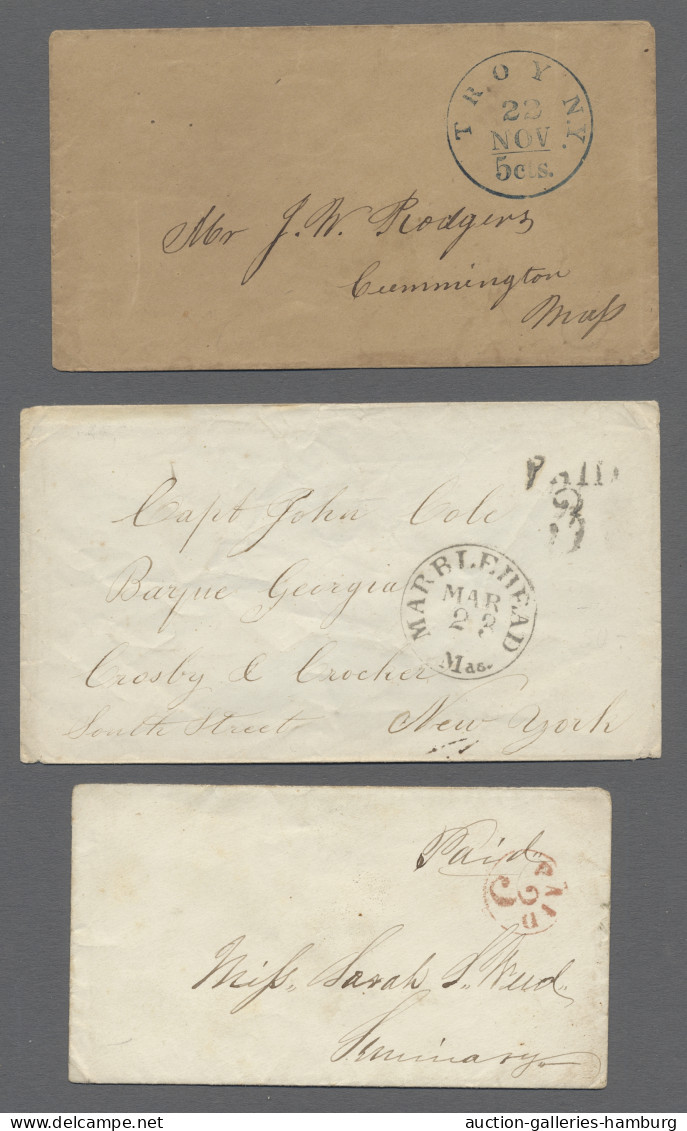 TROY N.Y.
22
NOV
5cts.
Mr J. W. Rodgers
Cummington
Maſs
PAID
3
Capt John Cole
Barque Georgia
MARBLEHEAD
MAR
23
Mas.
Crosby & Crocker
South Street New York
Paid
PAID
3
Miſs Sarah S.
Seminary
auction-galleries-hamburg